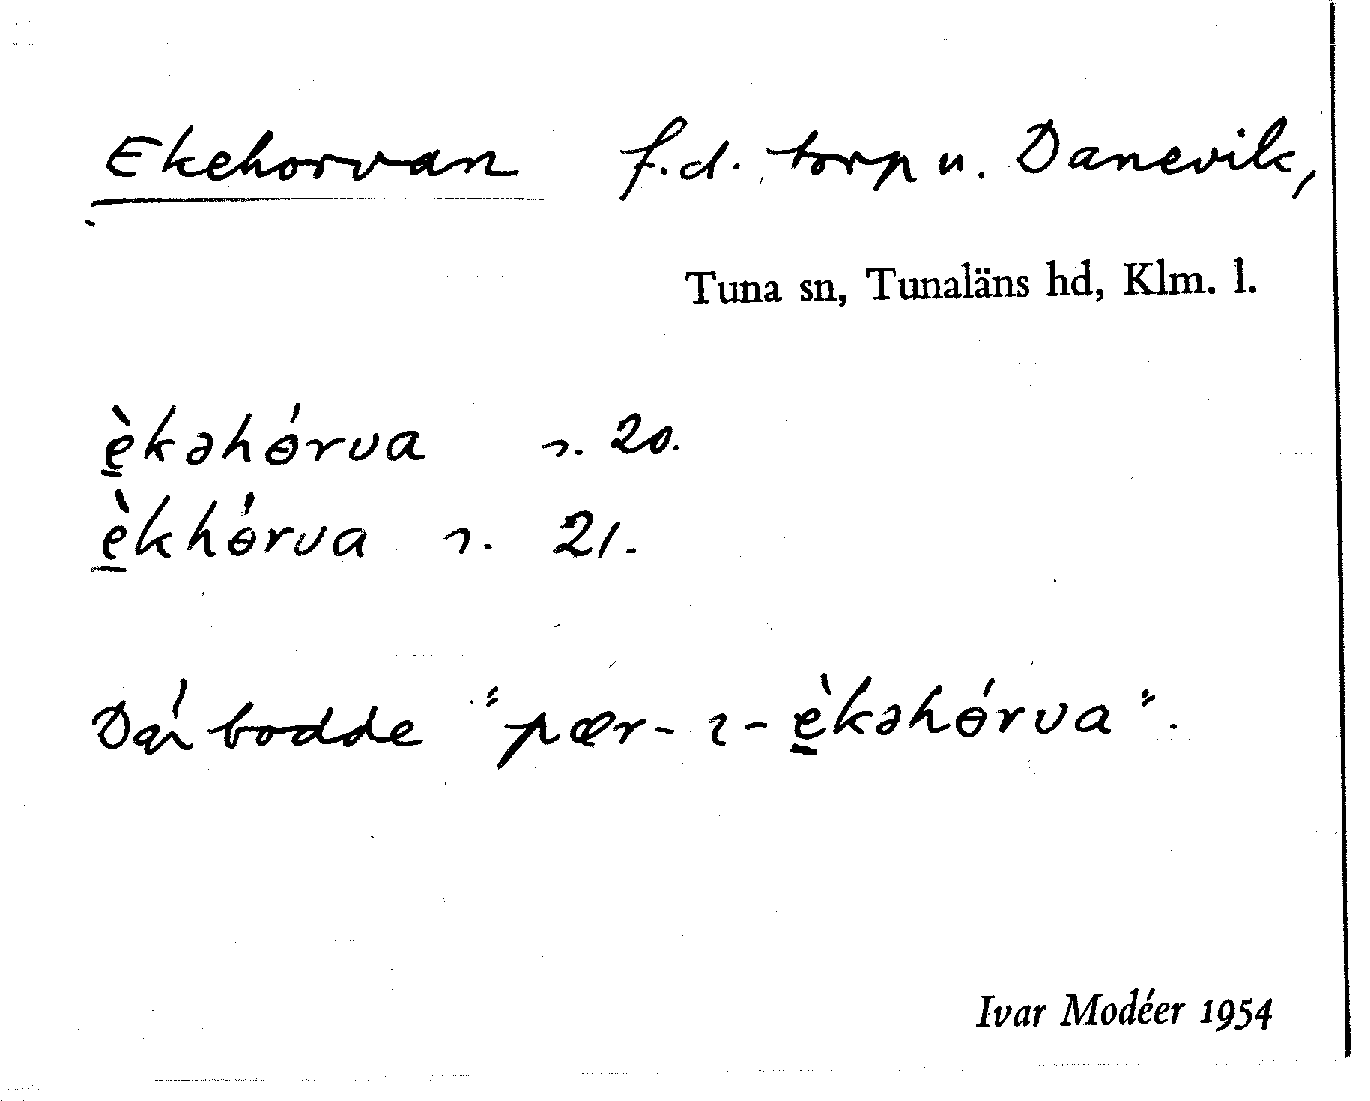 Ekehorvan f.d. torp u. Danevik,
Tuna sn, Tunaläns hd, Klm. l.
è̱kəhɵ́rva ɿ. 20.
è̱khɵ́rva ɿ. 21.
Där bodde "pær-ɿ-è̱kəhɵ́rva".
Ivar Modéer 1954